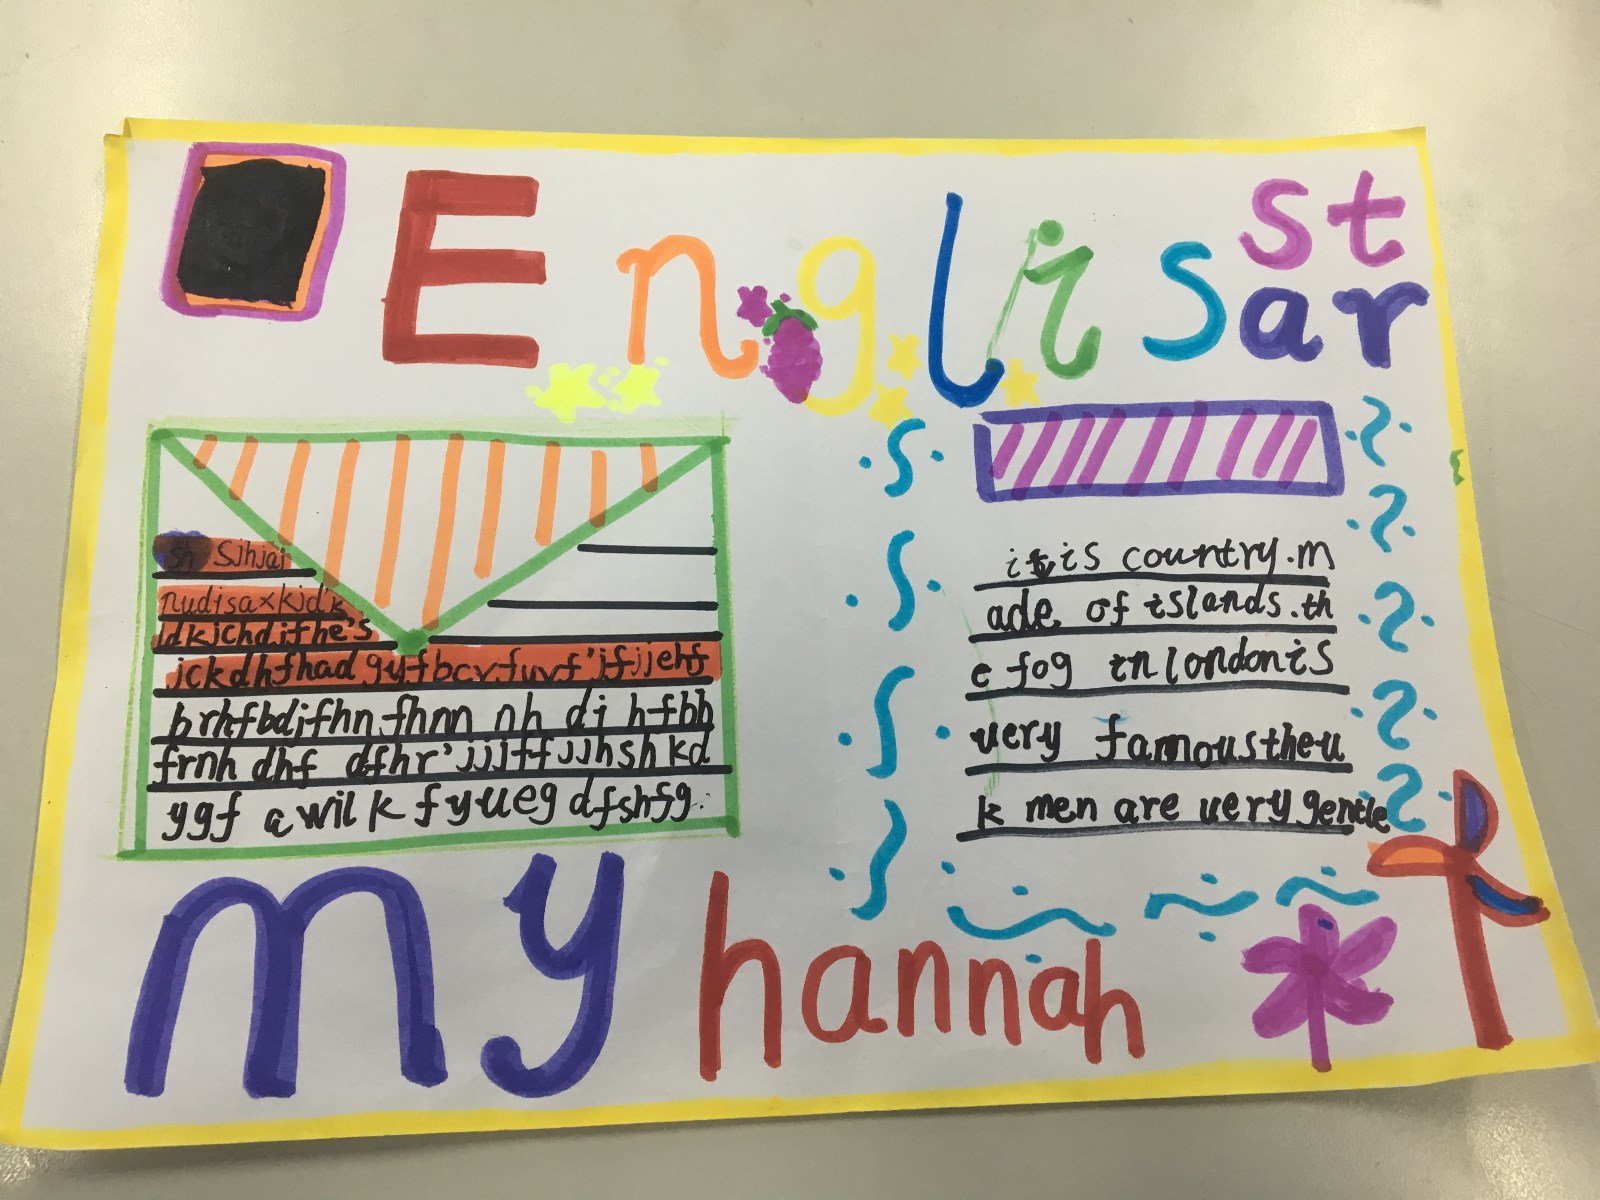 English
star
sh sjhjaj
nudisaxkjd'k
ldkjchdifhe's
jckdhfhad gyfbcvfuvf'jfjjehf
brhfbdjfhn fhnn nh dj hfbh
frnh dhf dfhr'jjjffjjhshkd
ygf awilk fyueg dfshfg.
it is country.m
ade of islands.th
e fog in londonis
very famoustheu
k men are verygentle
my hannah